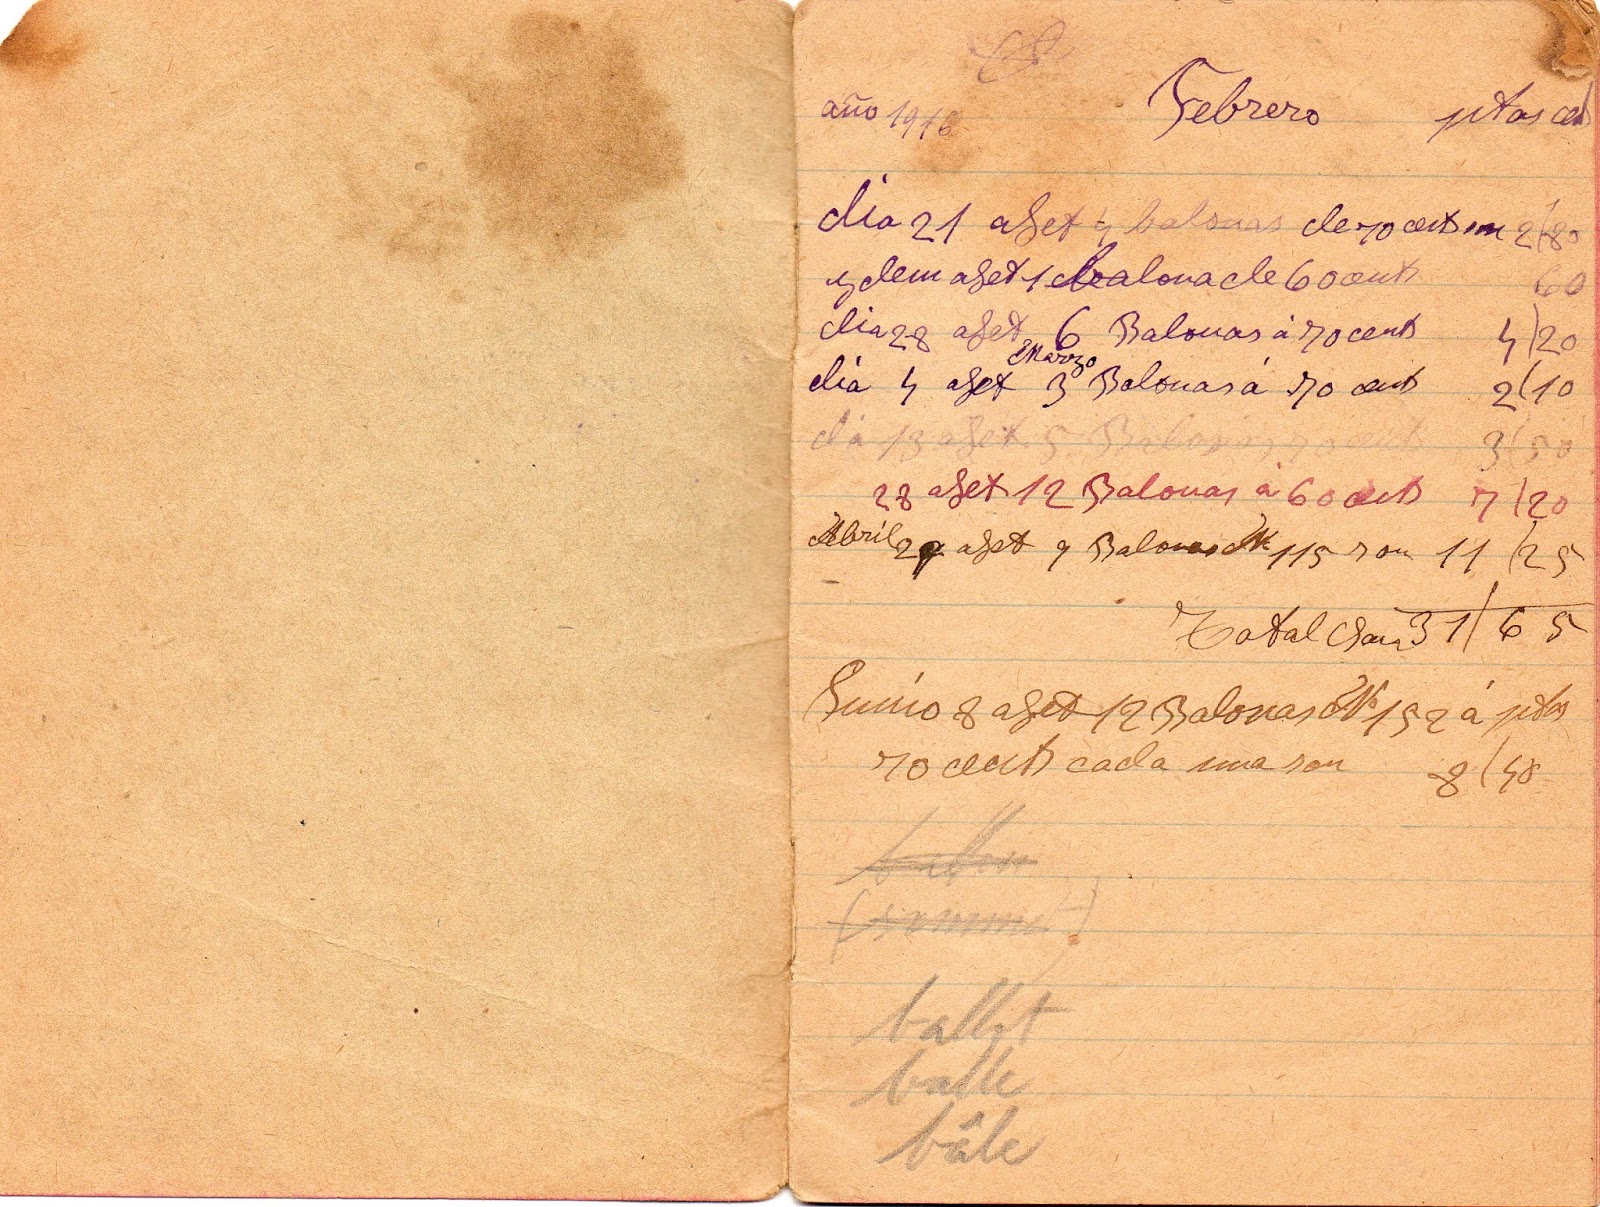 año 1916 Febrero ptas cet
dia 21 aget 4 balonas de 70 cents son 2/80
ydem aget 1 balona de 60 cents 60
dia 28 aget 6 Balonas á 70 cents 4/20
Marzo
dia 4 aget 3 Balonas á 70 cents 2/10
dia 13 aget 5 Balonas 70 cents 3/50
28 aget 12 Balonas á 60 cents 7/20
Abril 29 aget 9 Balonas Nº 115 son 11/25
Total 31/65
Junio 8 aget 12 Balonas Nº 152 á ptas
70 cents cada una son 8/48
ballon
(sommet)
ballot
balle
bâle